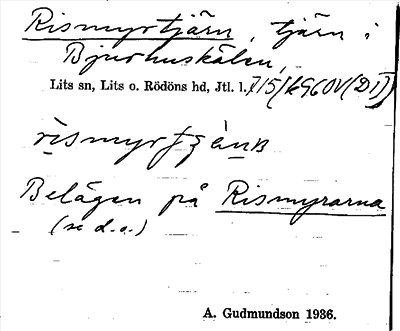 Rismyrtjärn, tjärn i
Bjurhuskälen,
Lits sn, Lits o. Rödöns hd, Jtl. l.
Belägen på Rismyrarna
(se d.o.)
A. Gudmundson 1936.